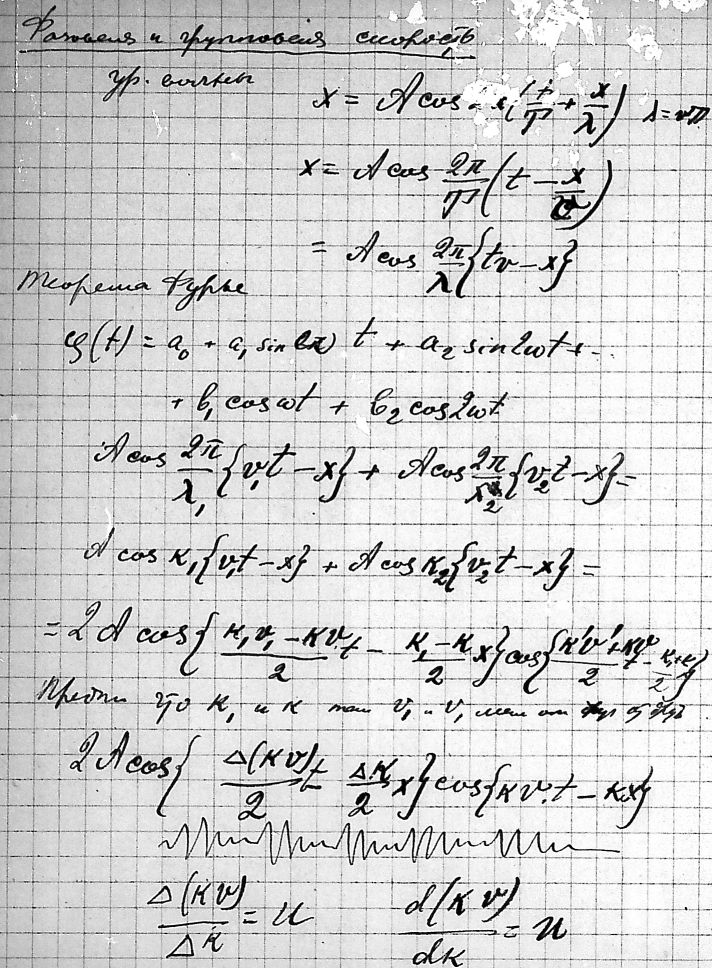 Фазовая и групповая скорость
ур. волны
x = A cos ( t/T + x/λ ) λ = vT
x = A cos 2π/T ( t − x/v )
= A cos 2π/λ { tv − x }
Теорема Фурье
φ(t) = a₀ + a₁ sin t + a₂ sin 2ωt + ..
+ b₁ cos ωt + b₂ cos 2ωt
A cos 2π/λ₁ { v₁t − x } + A cos 2π/λ₂ { v₂t − x } =
A cos κ₁ { v₁t − x } + A cos κ₂ { v₂t − x } =
= 2 A cos { (κ₁v₁ − κv)/2 t − (κ₁ − κ)/2 x } cos { (κ'v' + κv)/2 t − (κ₁ + κ)/2 x }
что κ₁ и κ v₁ и v,
2 A cos { Δ(κv)/2 t Δκ/2 x } cos { κv.t − κx }
Δ(κv)/Δκ = u d(κv)/dκ = u